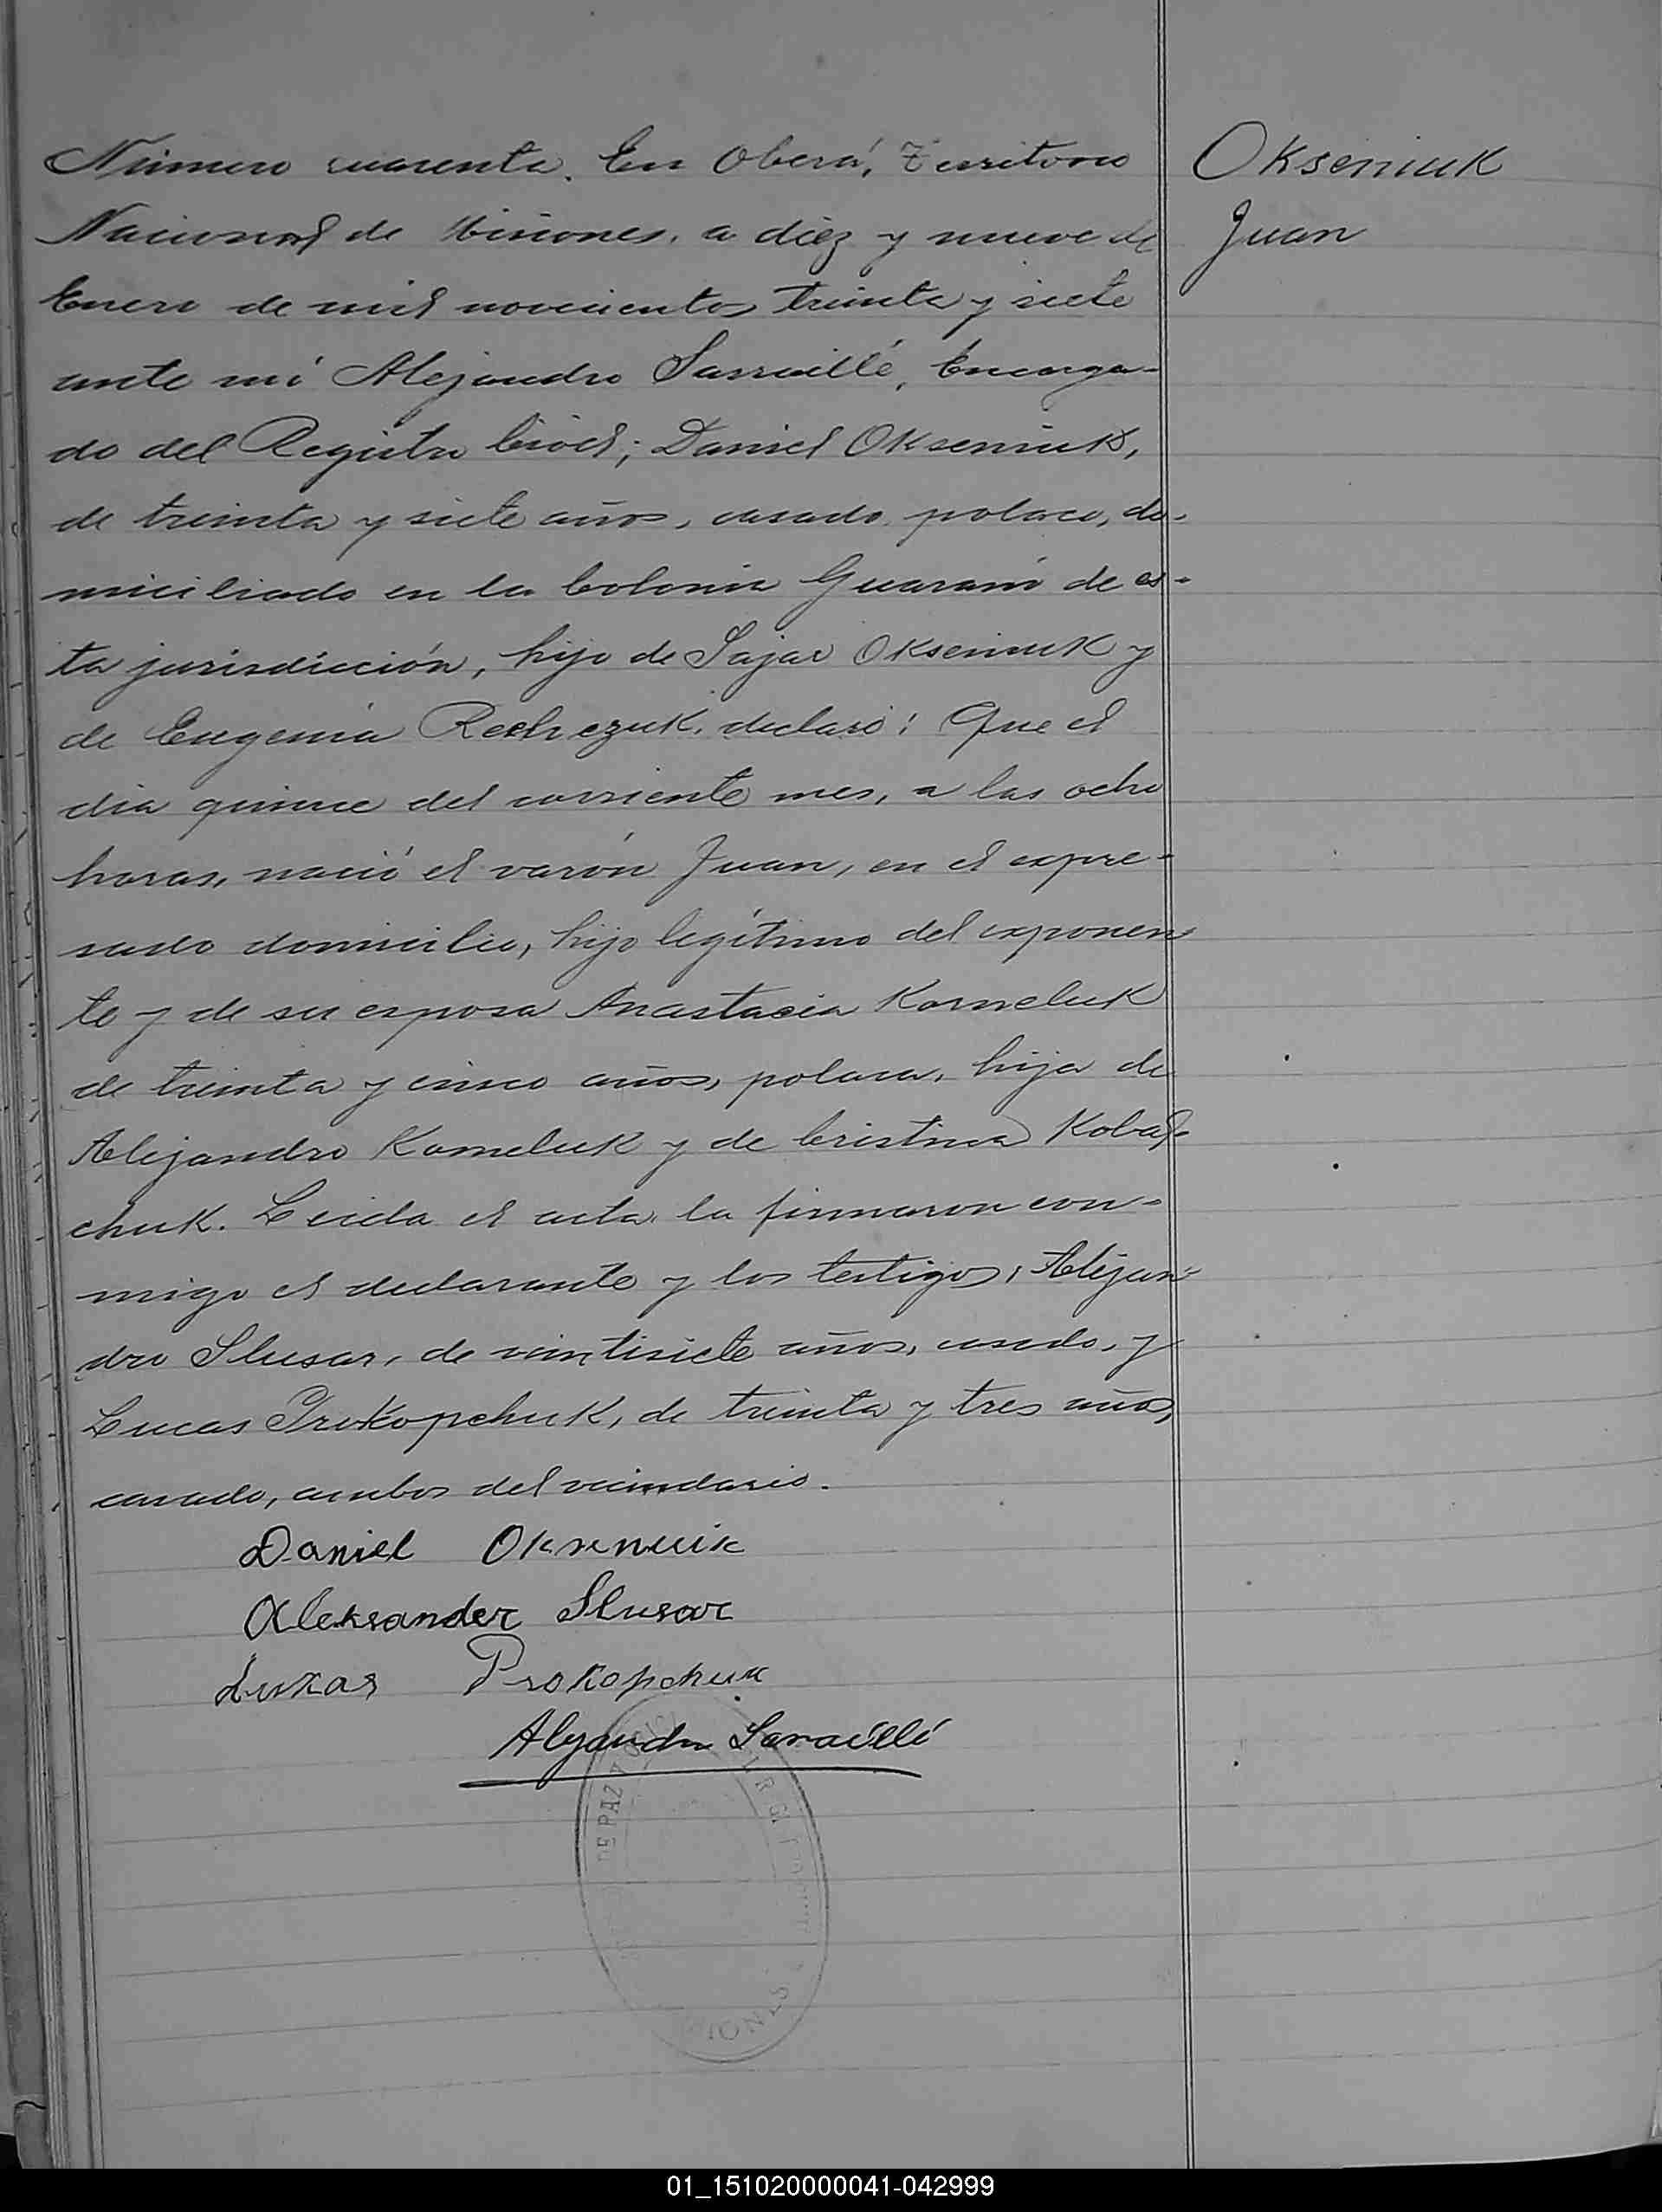 Número cuarenta. En Oberá, Territorio
Nacional de Misiones, a diez y nueve de
Enero de mil novecientos treinta y siete
ante mí Alejandro Sarraillé, Encarga-
do del Registro Civil; Daniel Okseniuk,
de treinta y siete años, casado, polaco, do-
miciliado en la Colonia Guaraní de es-
ta jurisdicción, hijo de Sajar Okseniuk y
de Eugenia declaró: Que el
día quince del corriente mes, a las ocho
horas, nació el varón Juan, en el expre-
sado domicilio, hijo legítimo del exponen
te y de su esposa Anastacia Korneluk
de treinta y cinco años, polaca, hija de
Alejandro Korneluk y de Cristina Kobal-
chuk. Leida el acta, la firmaron con-
migo el declarante y los testigos, Alejan-
dro Slusar, de veintisiete años, casado, y
Lucas Prokopchuk, de treinta y tres años,
casado, ambos del vecindario.
Okseniuk
Juan
Daniel Oksenuik
Aleksander Slusar
Lukas Prokopchuk
Alejandro Sarraillé
DE PAZ Y
IONES
01_151020000041-042999